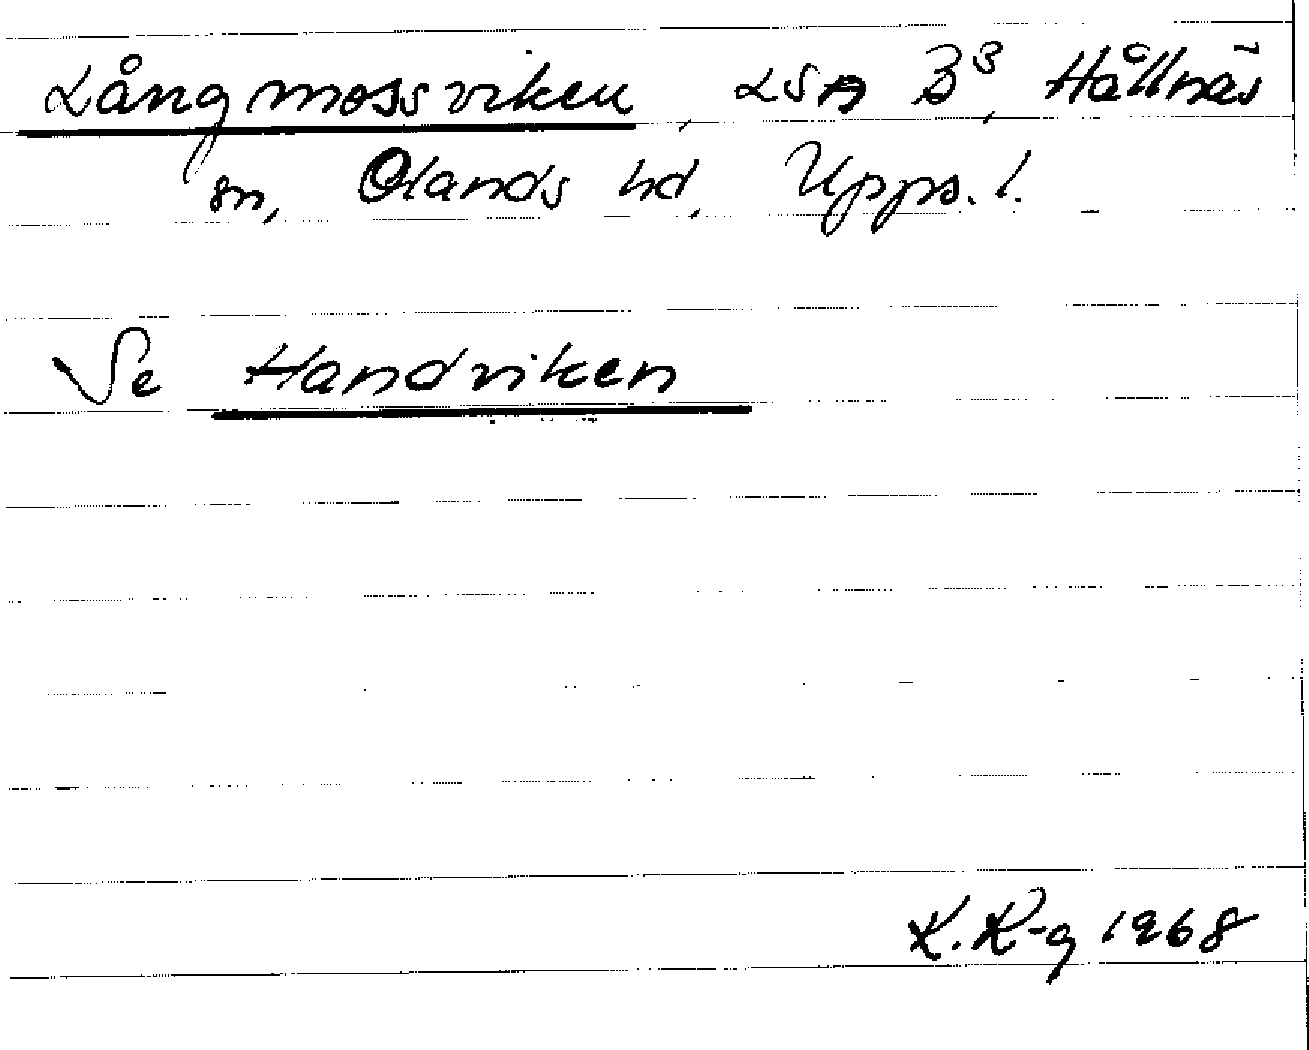 Långmossviken, LSA B³, Hållnäs
sn, Olands hd, Upps. l.
Se Handviken
K. K-g 1968